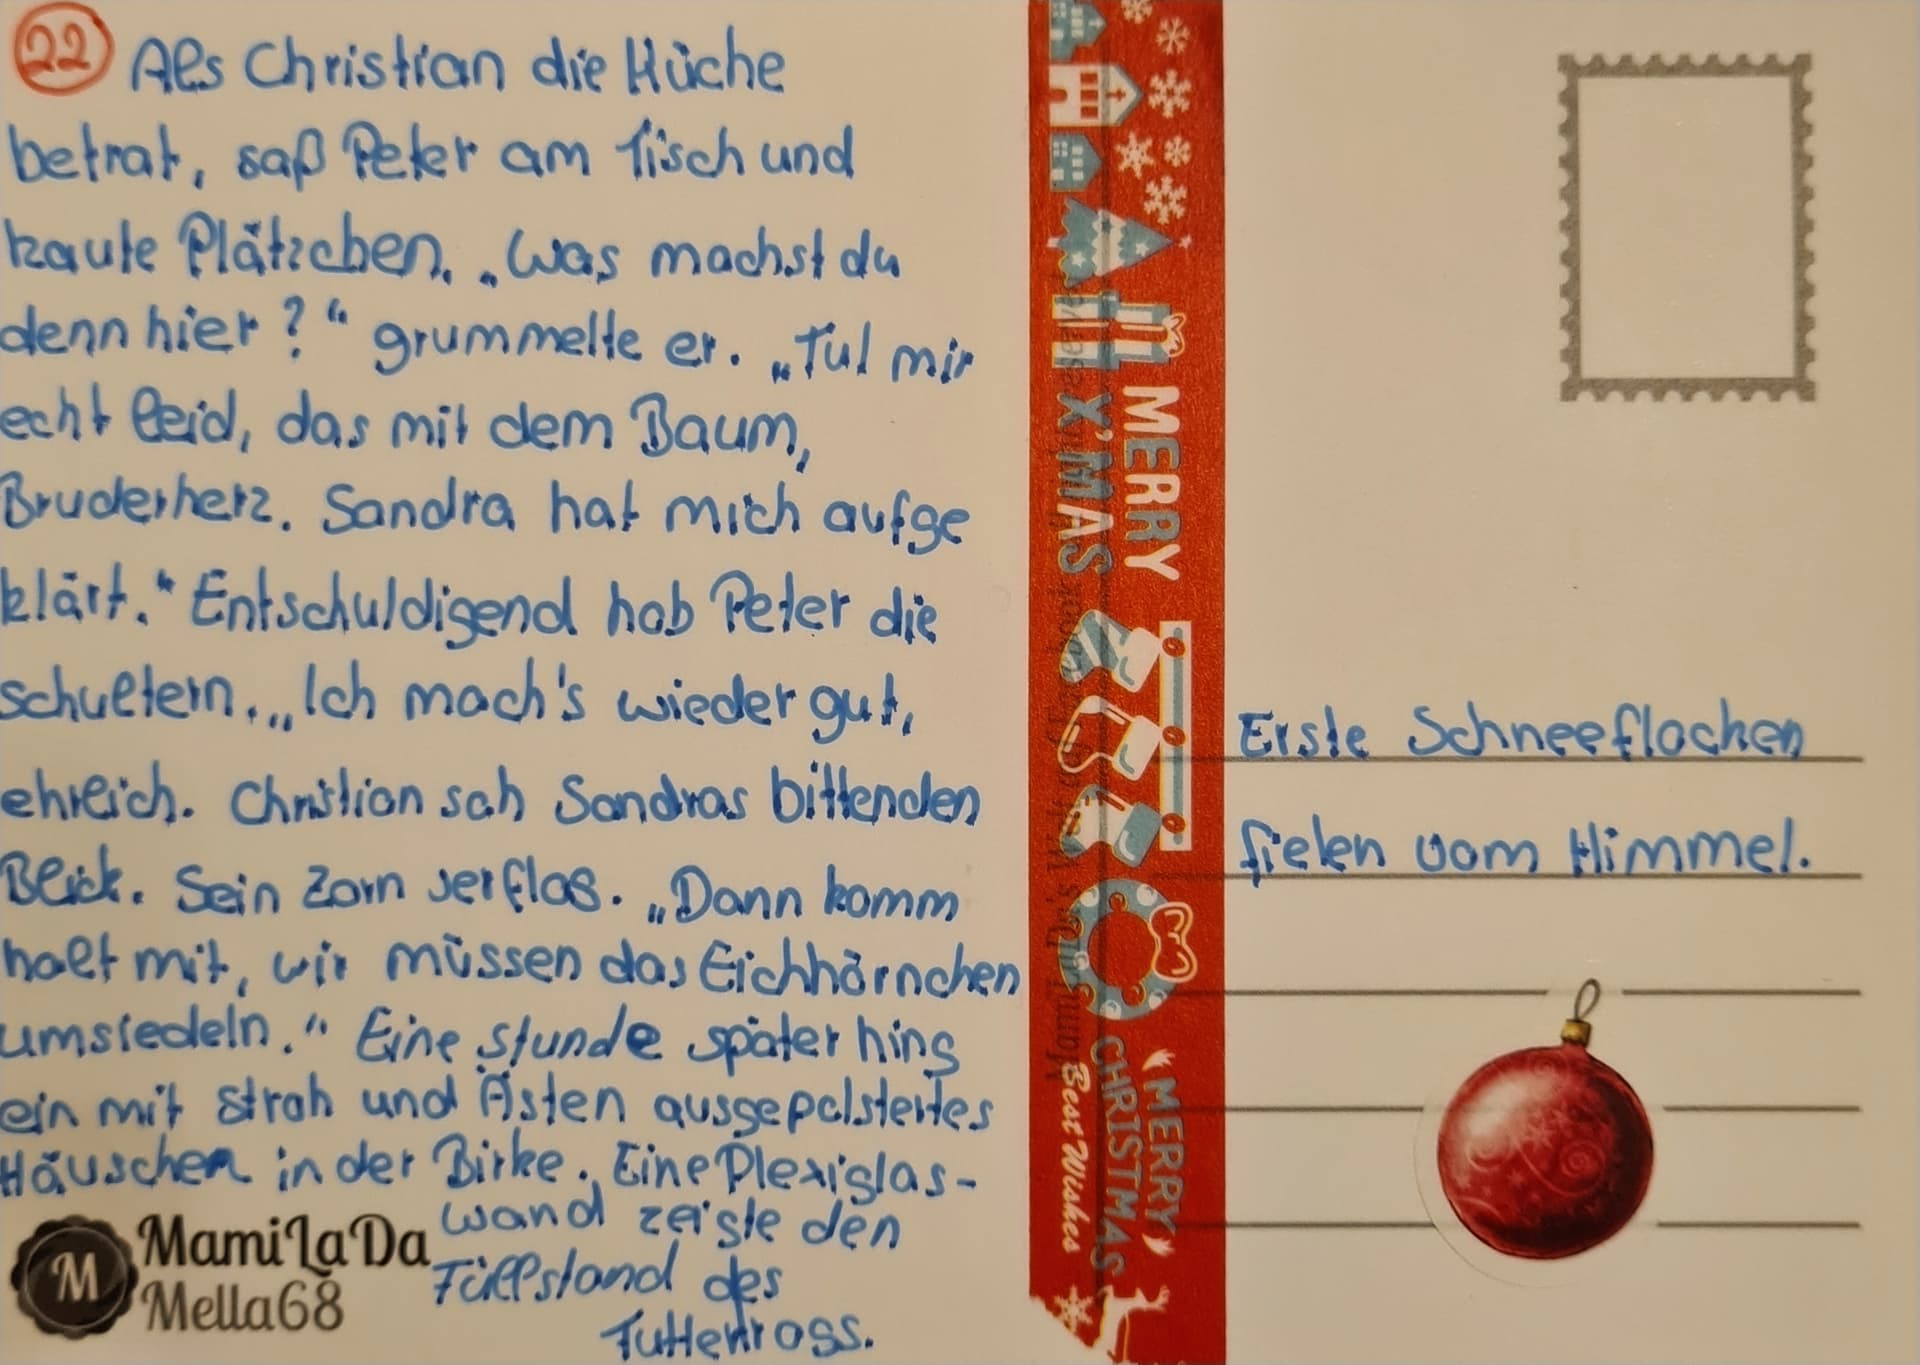 22 Als Christian die Küche
betrat, saß Peter am Tisch und
kaute Plätzchen. „Was machst du
denn hier?“ grummelte er. „Tut mir
echt leid, das mit dem Baum,
Bruderherz. Sandra hat mich aufge
klärt.“ Entschuldigend hob Peter die
schultern. „Ich mach's wieder gut,
ehrlich. Christian sah Sandras bittenden
Blick. Sein Zorn verflog. „Dann komm
halt mit, wir müssen das Eichhörnchen
umsiedeln.“ Eine stunde später hing
ein mit Stroh und Ästen ausgepolstertes
Häuschen in der Birke. Eine Plexiglas-
wand zeigte den
Füllstand des
MamiLaDa
Mella68
M
MERRY
X'MAS
MERRY
CHRISTMAS
Best Wishes
Erste Schneeflocken
fielen vom Himmel.